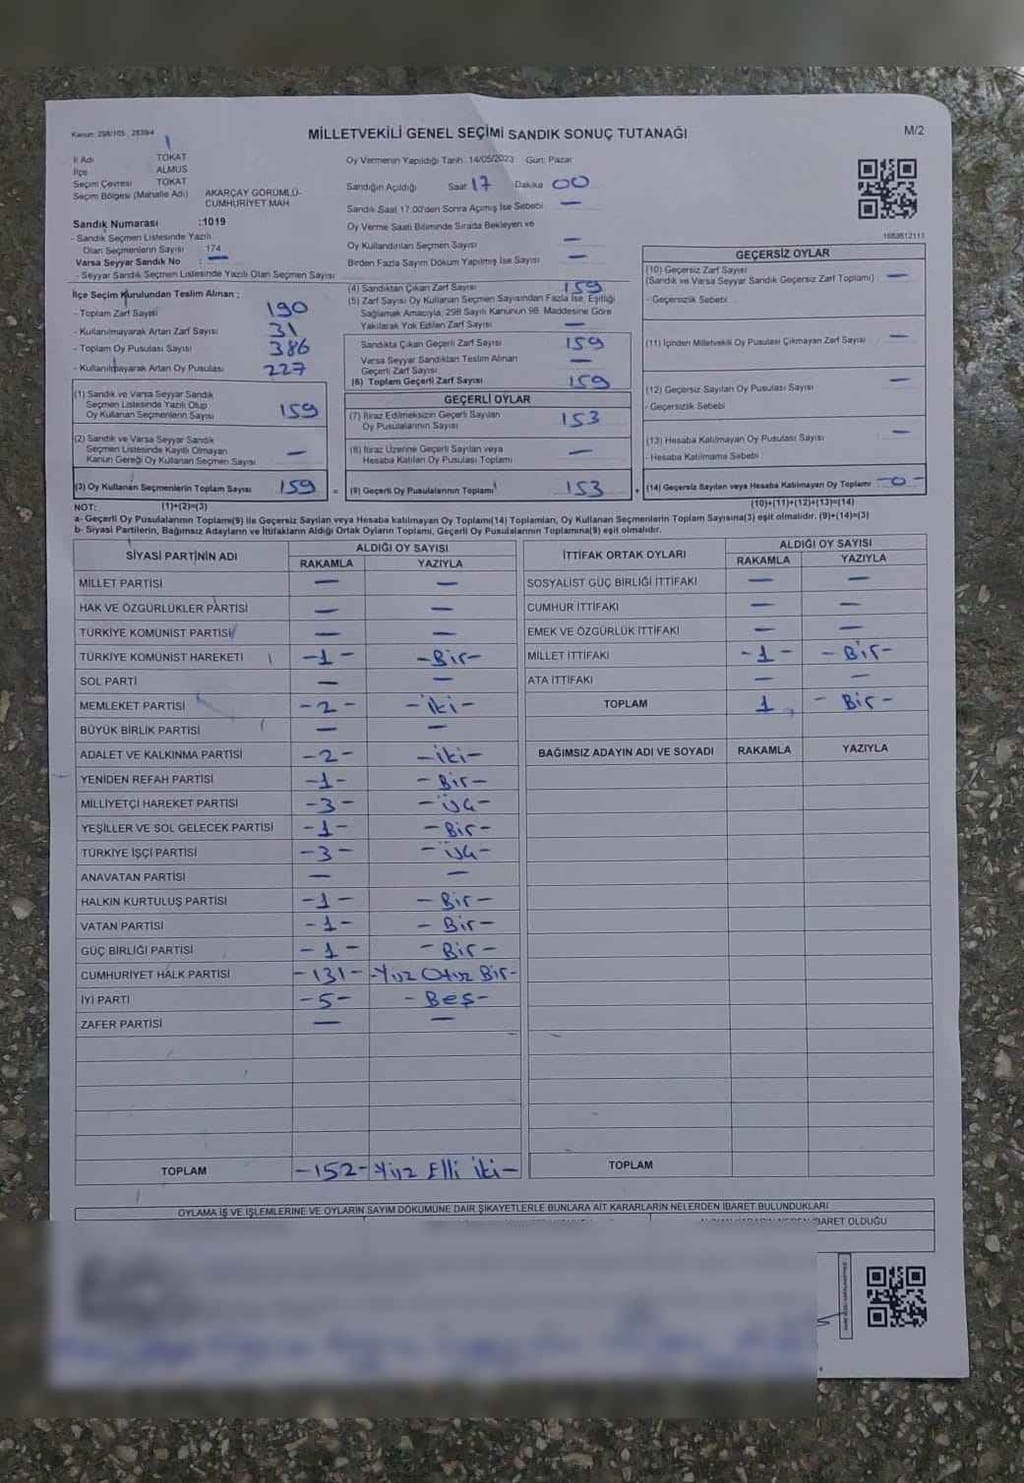 Kanun: 298/105, 2839/4
MİLLETVEKİLİ GENEL SEÇİMİ SANDIK SONUÇ TUTANAĞI
M/2
İl Adı TOKAT
İlçe ALMUS
Seçim Çevresi TOKAT
Seçim Bölgesi (Mahalle Adı) AKARÇAY GÖRÜMLÜ-
CUMHURİYET MAH
Sandık Numarası :1019
- Sandık Seçmen Listesinde Yazılı
Olan Seçmenlerin Sayısı : 174
Varsa Seyyar Sandık No : —
- Seyyar Sandık Seçmen Listesinde Yazılı Olan Seçmen Sayısı
Oy Vermenin Yapıldığı Tarih: 14/05/2023 Gün: Pazar
Sandığın Açıldığı Saat 17 Dakika 00
Sandık Saat 17.00'den Sonra Açılmış İse Sebebi —
Oy Verme Saati Bitiminde Sırada Bekleyen ve
Oy Kullandırılan Seçmen Sayısı —
Birden Fazla Sayım Döküm Yapılmış İse Sayısı —
İlçe Seçim Kurulundan Teslim Alınan ;
- Toplam Zarf Sayısı 190
- Kullanılmayarak Artan Zarf Sayısı 31
- Toplam Oy Pusulası Sayısı 386
- Kullanılmayarak Artan Oy Pusulası 227
(1) Sandık ve Varsa Seyyar Sandık
Seçmen Listesinde Yazılı Olup
Oy Kullanan Seçmenlerin Sayısı 159
(2) Sandık ve Varsa Seyyar Sandık
Seçmen Listesinde Kayıtlı Olmayan
Kanun Gereği Oy Kullanan Seçmen Sayısı —
(3) Oy Kullanan Seçmenlerin Toplam Sayısı 159 =
(4) Sandıktan Çıkan Zarf Sayısı 159
(5) Zarf Sayısı Oy Kullanan Seçmen Sayısından Fazla İse, Eşitliği
Sağlamak Amacıyla, 298 Sayılı Kanunun 98. Maddesine Göre
Yakılarak Yok Edilen Zarf Sayısı —
Sandıkta Çıkan Geçerli Zarf Sayısı 159
Varsa Seyyar Sandıktan Teslim Alınan
Geçerli Zarf Sayısı —
(6) Toplam Geçerli Zarf Sayısı 159
GEÇERLİ OYLAR
(7) İtiraz Edilmeksizin Geçerli Sayılan
Oy Pusulalarının Sayısı 153
(8) İtiraz Üzerine Geçerli Sayılan veya
Hesaba Katılan Oy Pusulası Toplamı —
(9) Geçerli Oy Pusulalarının Toplamı 153 +
1683812111
GEÇERSİZ OYLAR
(10) Geçersiz Zarf Sayısı
(Sandık ve Varsa Seyyar Sandık Geçersiz Zarf Toplamı) —
- Geçersizlik Sebebi
(11) İçinden Milletvekili Oy Pusulası Çıkmayan Zarf Sayısı —
(12) Geçersiz Sayılan Oy Pusulası Sayısı —
- Geçersizlik Sebebi
(13) Hesaba Katılmayan Oy Pusulası Sayısı —
- Hesaba Katılmama Sebebi
(14) Geçersiz Sayılan veya Hesaba Katılmayan Oy Toplamı -0-
NOT: (1)+(2)=(3) (10)+(11)+(12)+(13)=(14)
a- Geçerli Oy Pusulalarının Toplamı(9) ile Geçersiz Sayılan veya Hesaba katılmayan Oy Toplamı(14) Toplamları, Oy Kullanan Seçmenlerin Toplam Sayısına(3) eşit olmalıdır. (9)+(14)=(3)
b- Siyasi Partilerin, Bağımsız Adayların ve İttifakların Aldığı Ortak Oyların Toplamı, Geçerli Oy Pusulalarının Toplamına(9) eşit olmalıdır.
SİYASİ PARTİNİN ADI ALDIĞI OY SAYISI
RAKAMLA YAZIYLA
MİLLET PARTİSİ — —
HAK VE ÖZGÜRLÜKLER PARTİSİ — —
TÜRKİYE KOMÜNİST PARTİSİ — —
TÜRKİYE KOMÜNİST HAREKETİ -1- -Bir-
SOL PARTİ — —
MEMLEKET PARTİSİ -2- -İki-
BÜYÜK BİRLİK PARTİSİ — —
ADALET VE KALKINMA PARTİSİ -2- -İki-
YENİDEN REFAH PARTİSİ -1- -Bir-
MİLLİYETÇİ HAREKET PARTİSİ -3- -Üç-
YEŞİLLER VE SOL GELECEK PARTİSİ -1- -Bir-
TÜRKİYE İŞÇİ PARTİSİ -3- -Üç-
ANAVATAN PARTİSİ — —
HALKIN KURTULUŞ PARTİSİ -1- -Bir-
VATAN PARTİSİ -1- -Bir-
GÜÇ BİRLİĞİ PARTİSİ -1- -Bir-
CUMHURİYET HALK PARTİSİ -131- -Yüz Otuz Bir-
İYİ PARTİ -5- -Beş-
ZAFER PARTİSİ — —
TOPLAM -152- Yüz Elli İki-
İTTİFAK ORTAK OYLARI ALDIĞI OY SAYISI
RAKAMLA YAZIYLA
SOSYALİST GÜÇ BİRLİĞİ İTTİFAKI — —
CUMHUR İTTİFAKI — —
EMEK VE ÖZGÜRLÜK İTTİFAKI — —
MİLLET İTTİFAKI -1- -Bir-
ATA İTTİFAKI — —
TOPLAM 1 -Bir-
BAĞIMSIZ ADAYIN ADI VE SOYADI RAKAMLA YAZIYLA
TOPLAM
OYLAMA İŞ VE İŞLEMLERİNE VE OYLARIN SAYIM DÖKÜMÜNE DAİR ŞİKAYETLERLE BUNLARA AİT KARARLARIN NELERDEN İBARET BULUNDUKLARI
İBARET OLDUĞU